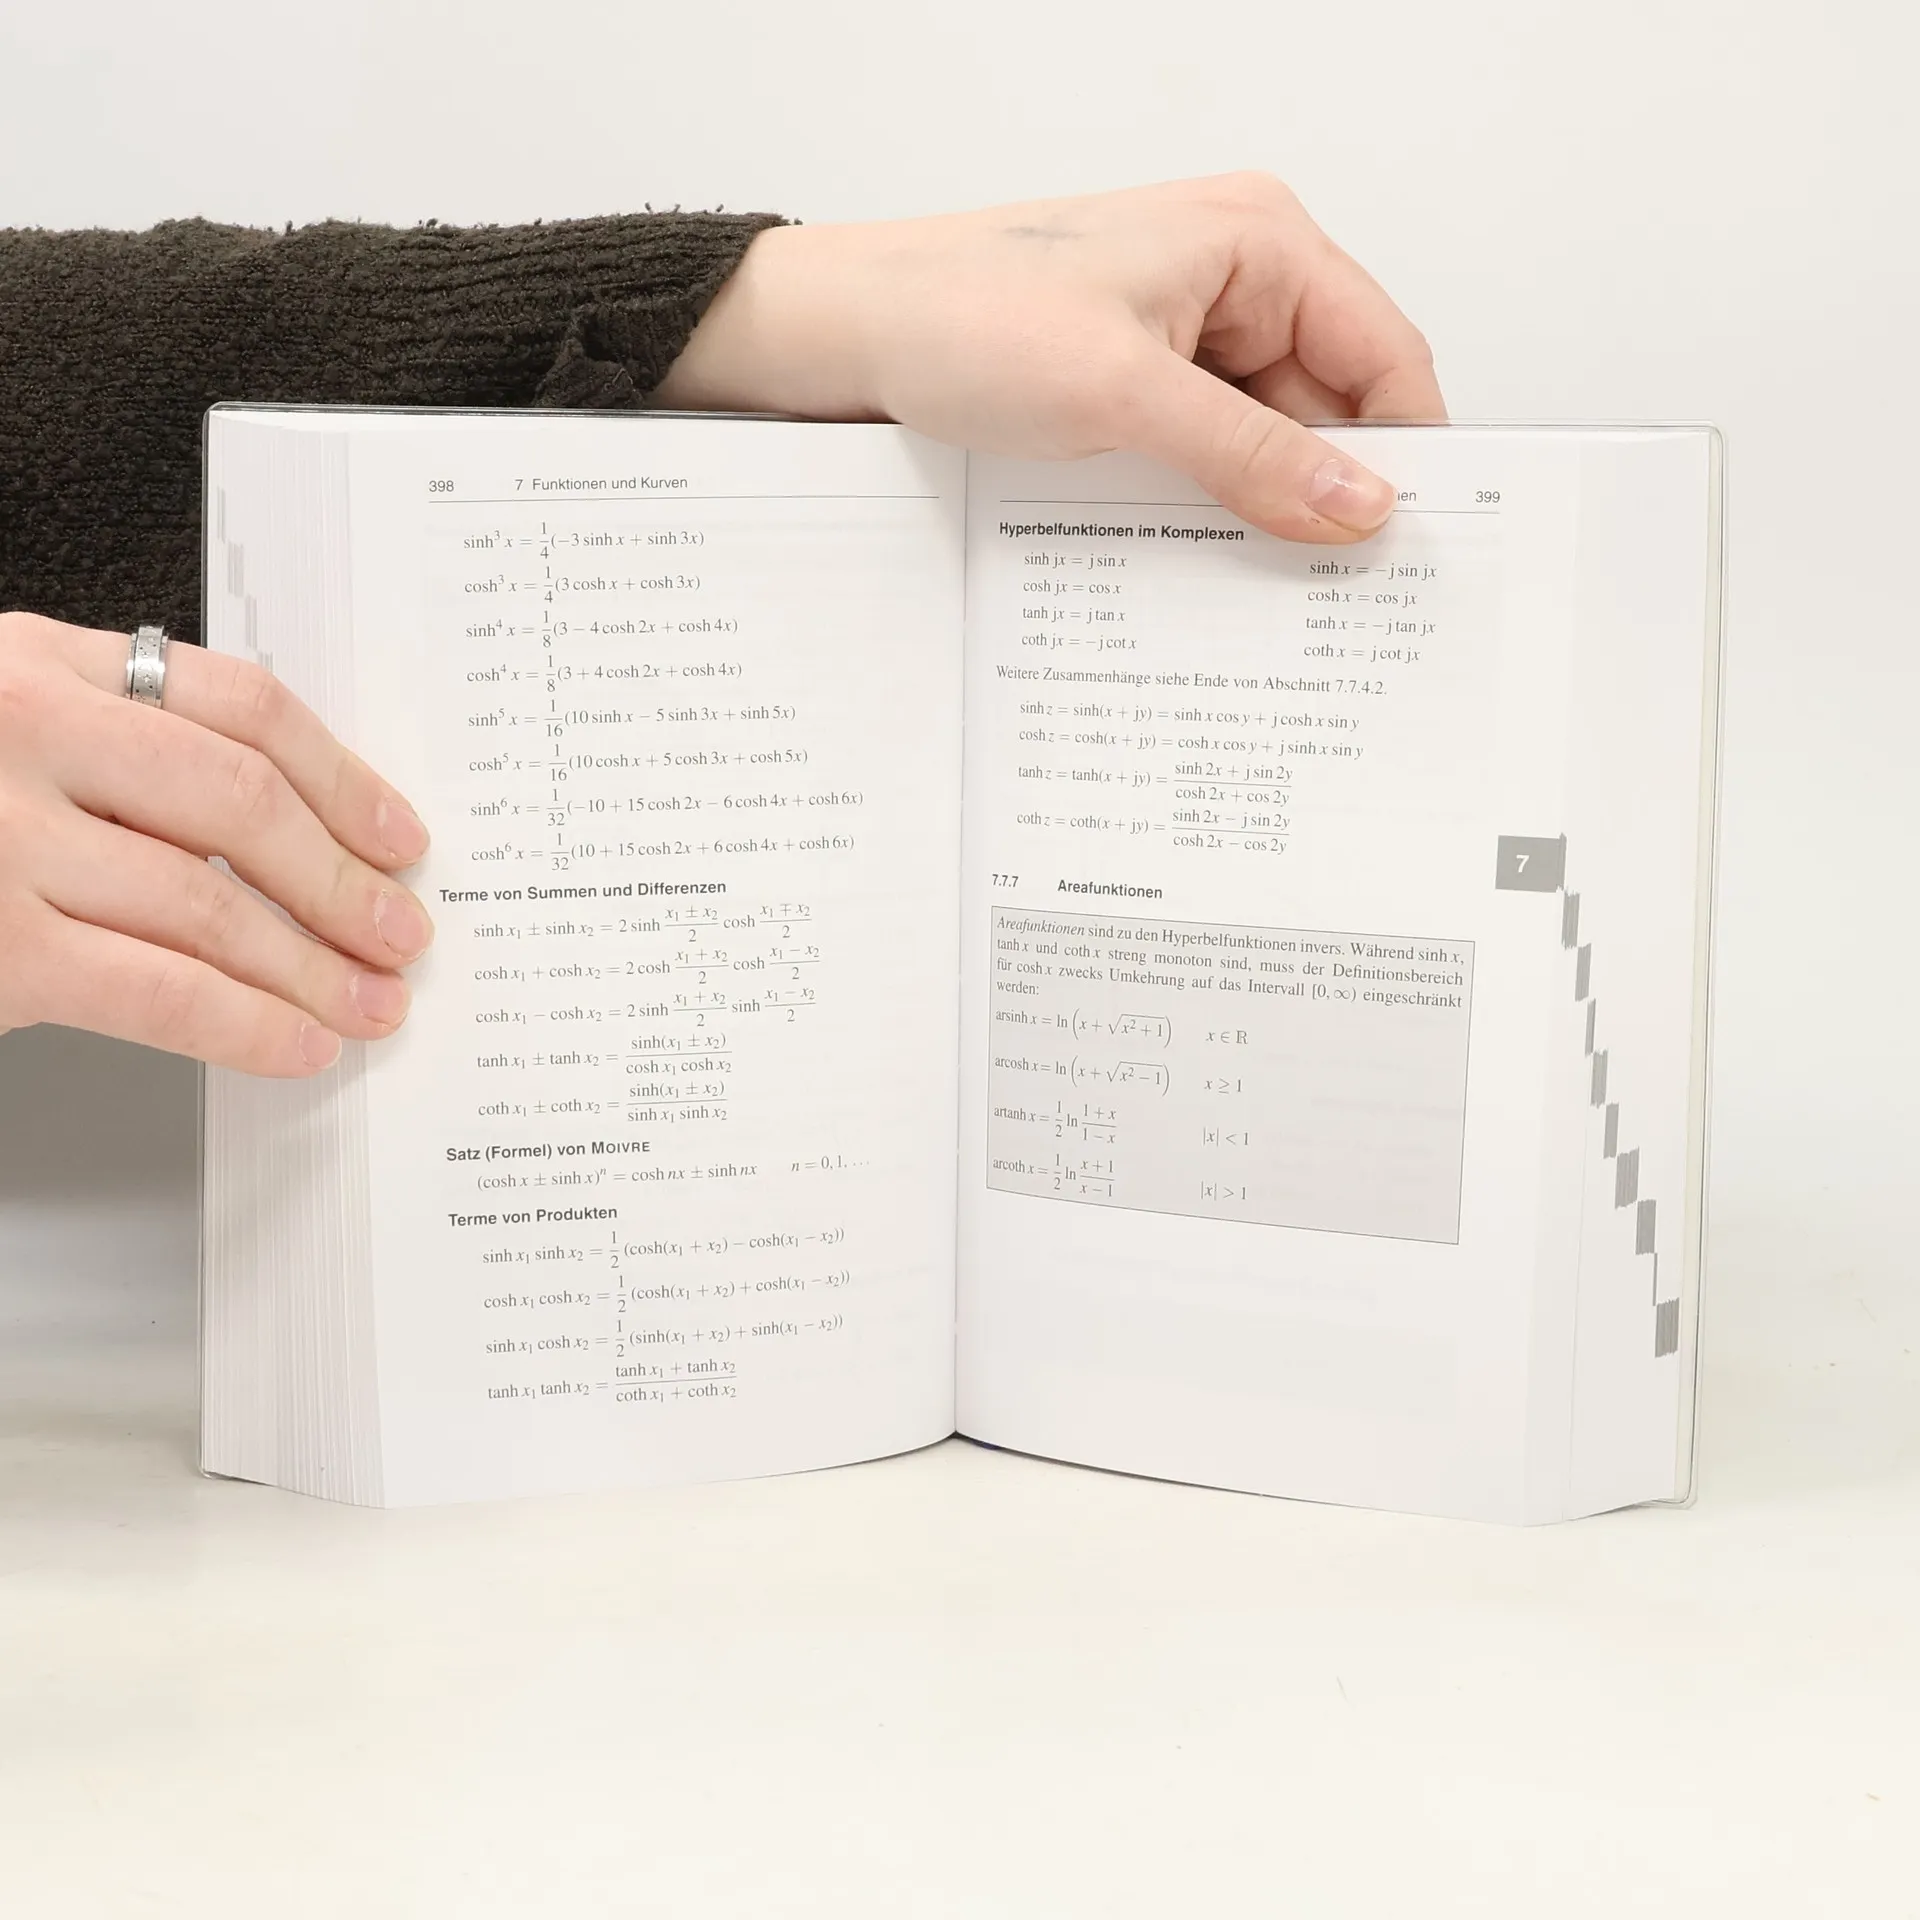 398 7 Funktionen und Kurven
sinh³ x = 1/4 (−3 sinh x + sinh 3x)
cosh³ x = 1/4 (3 cosh x + cosh 3x)
sinh⁴ x = 1/8 (3 − 4 cosh 2x + cosh 4x)
cosh⁴ x = 1/8 (3 + 4 cosh 2x + cosh 4x)
sinh⁵ x = 1/16 (10 sinh x − 5 sinh 3x + sinh 5x)
cosh⁵ x = 1/16 (10 cosh x + 5 cosh 3x + cosh 5x)
sinh⁶ x = 1/32 (−10 + 15 cosh 2x − 6 cosh 4x + cosh 6x)
cosh⁶ x = 1/32 (10 + 15 cosh 2x + 6 cosh 4x + cosh 6x)
Terme von Summen und Differenzen
sinh x₁ ± sinh x₂ = 2 sinh (x₁ ± x₂)/2 cosh (x₁ ∓ x₂)/2
cosh x₁ + cosh x₂ = 2 cosh (x₁ + x₂)/2 cosh (x₁ − x₂)/2
cosh x₁ − cosh x₂ = 2 sinh (x₁ + x₂)/2 sinh (x₁ − x₂)/2
tanh x₁ ± tanh x₂ = sinh(x₁ ± x₂)/(cosh x₁ cosh x₂)
coth x₁ ± coth x₂ = sinh(x₁ ± x₂)/(sinh x₁ sinh x₂)
Satz (Formel) von MOIVRE
(cosh x ± sinh x)ⁿ = cosh nx ± sinh nx n = 0, 1, …
Terme von Produkten
sinh x₁ sinh x₂ = 1/2 (cosh(x₁ + x₂) − cosh(x₁ − x₂))
cosh x₁ cosh x₂ = 1/2 (cosh(x₁ + x₂) + cosh(x₁ − x₂))
sinh x₁ cosh x₂ = 1/2 (sinh(x₁ + x₂) + sinh(x₁ − x₂))
tanh x₁ tanh x₂ = (tanh x₁ + tanh x₂)/(coth x₁ + coth x₂)
399
Hyperbelfunktionen im Komplexen
sinh jx = j sin x sinh x = −j sin jx
cosh jx = cos x cosh x = cos jx
tanh jx = j tan x tanh x = −j tan jx
coth jx = −j cot x coth x = j cot jx
Weitere Zusammenhänge siehe Ende von Abschnitt 7.7.4.2.
sinh z = sinh(x + jy) = sinh x cos y + j cosh x sin y
cosh z = cosh(x + jy) = cosh x cos y + j sinh x sin y
tanh z = tanh(x + jy) = (sinh 2x + j sin 2y)/(cosh 2x + cos 2y)
coth z = coth(x + jy) = (sinh 2x − j sin 2y)/(cosh 2x − cos 2y)
7
7.7.7 Areafunktionen
Areafunktionen sind zu den Hyperbelfunktionen invers. Während sinh x,
tanh x und coth x streng monoton sind, muss der Definitionsbereich
für cosh x zwecks Umkehrung auf das Intervall [0, ∞) eingeschränkt
werden:
arsinh x = ln (x + √(x² + 1)) x ∈ ℝ
arcosh x = ln (x + √(x² − 1)) x ≥ 1
artanh x = 1/2 ln (1 + x)/(1 − x) |x| < 1
arcoth x = 1/2 ln (x + 1)/(x − 1) |x| > 1